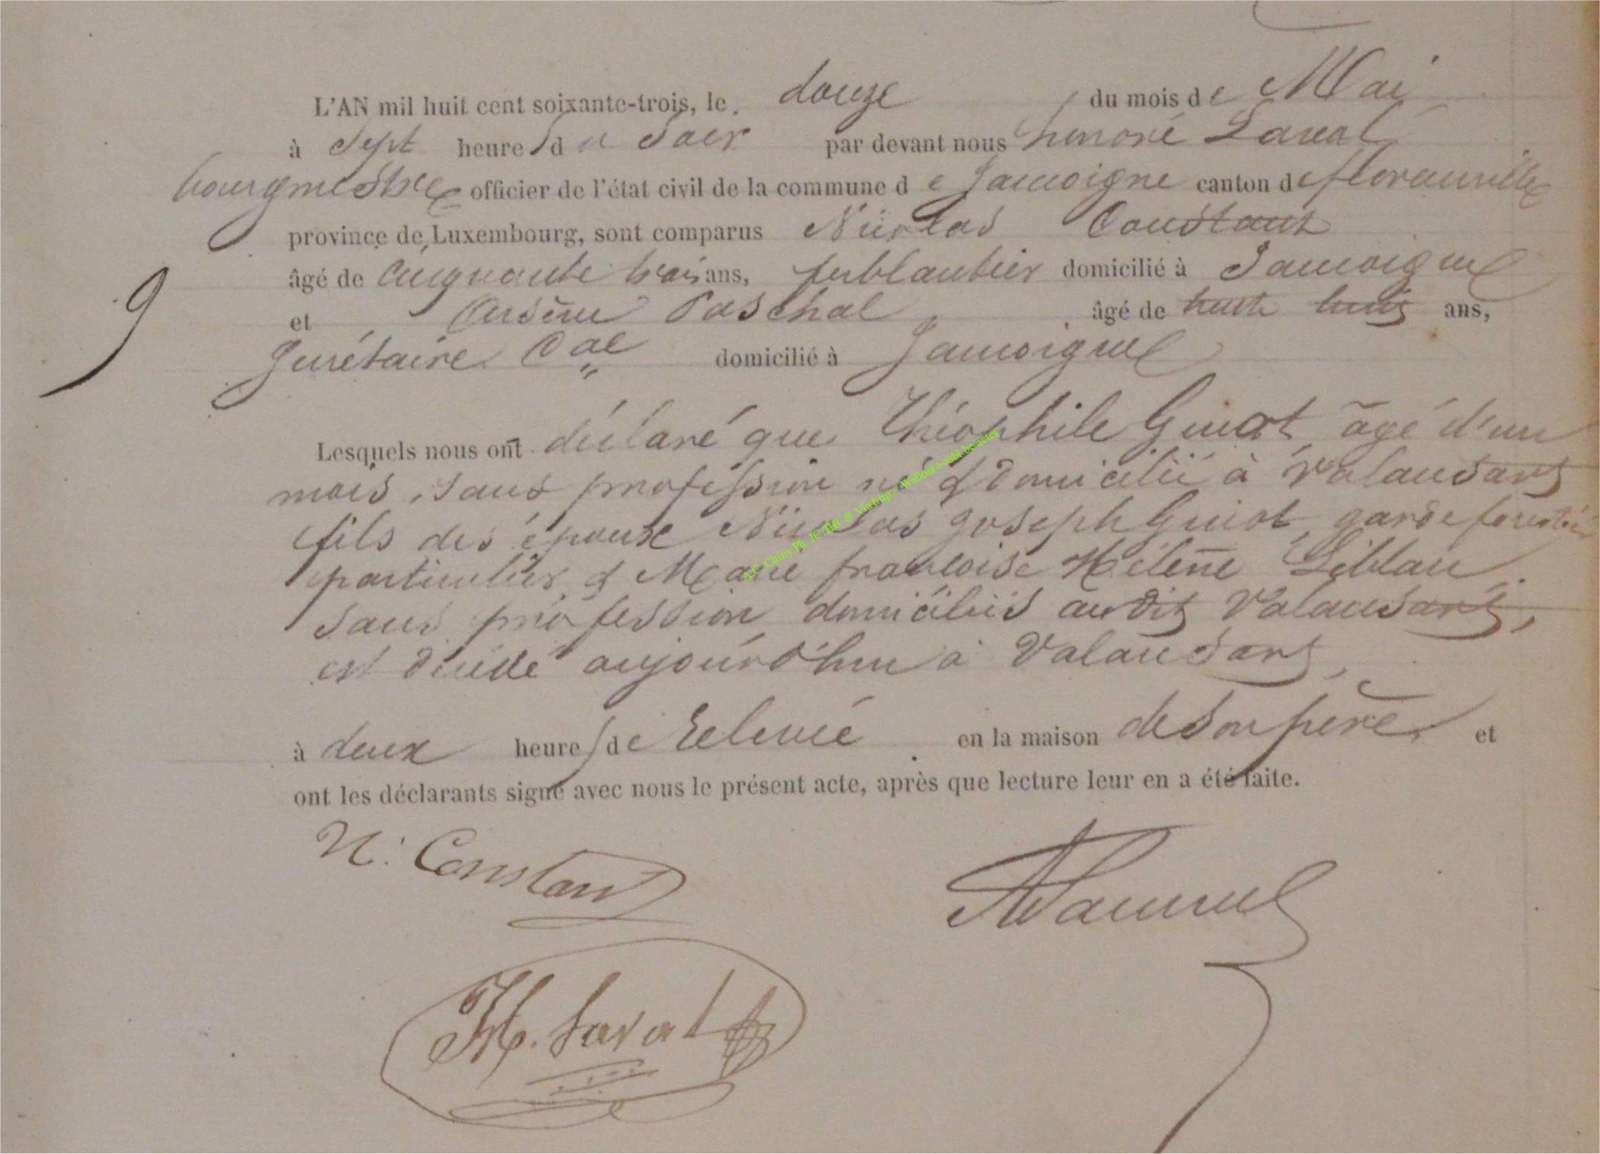 L'AN mil huit cent soixante-trois, le douze du mois de Mai
à Sept heures du Soir par devant nous honoré Laval
bourgmestre officier de l'état civil de la commune de Jamoigne canton de florenville
province de Luxembourg, sont comparus Nicolas Constant
âgé de Cinquante trois ans, ferblantier domicilié à Jamoigne
et Paschal âgé de ans,
9
Secrétaire Cal domicilié à Jamoigne
Lesquels nous ont déclaré que Théophile Guiot âgé d'un
mois, sans profession né & domicilié à Valansart
fils des époux Nicolas Joseph Guiot, garde forestier
particulier, & Marie françoise Hélène Leblan
sans profession domiciliés audit Valansart,
est décédé aujourd'hui à Valansart,
à deux heures de Relevée en la maison de son père et
ont les déclarants signé avec nous le présent acte, après que lecture leur en a été faite.
N. Constant
H. Laval